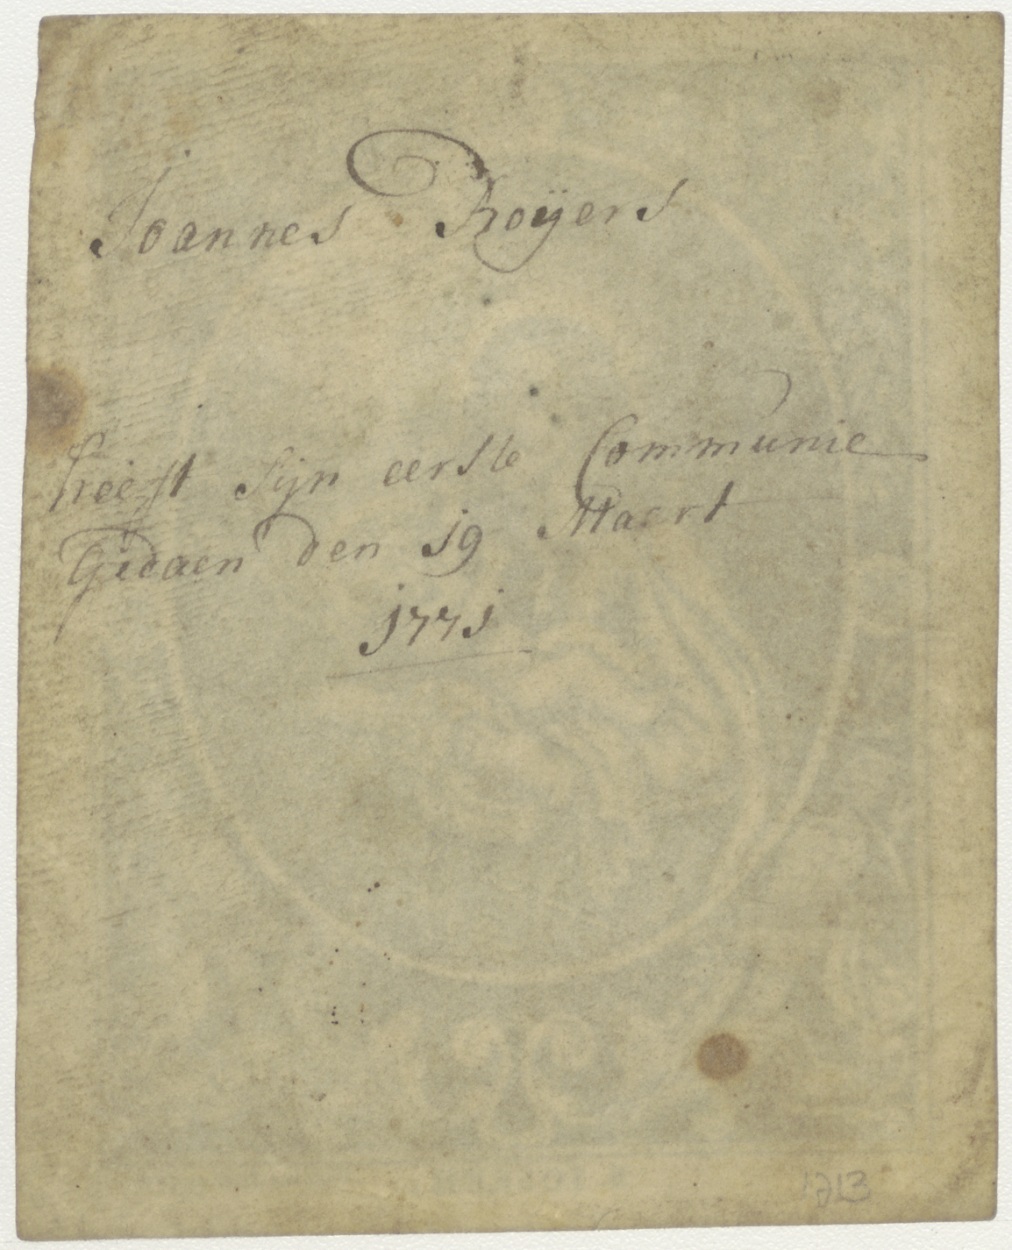 Joannes Roÿers
heeft sijn eerste Communie
Gedaen den 19 Maert
1771